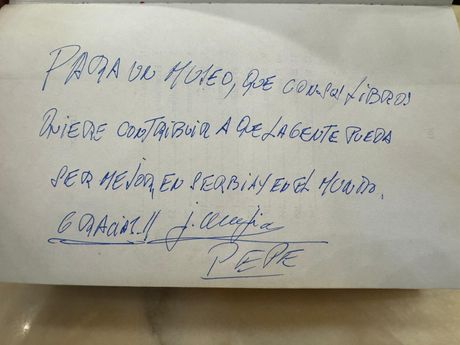 PARA UN MUSEO, QUE CON SUS LIBROS
QUIERE CONTRIBUIR A QUE LA GENTE PUEDA
SER MEJOR EN SERBIA Y EN EL MUNDO.
GRACIAS!! J.
PEPE